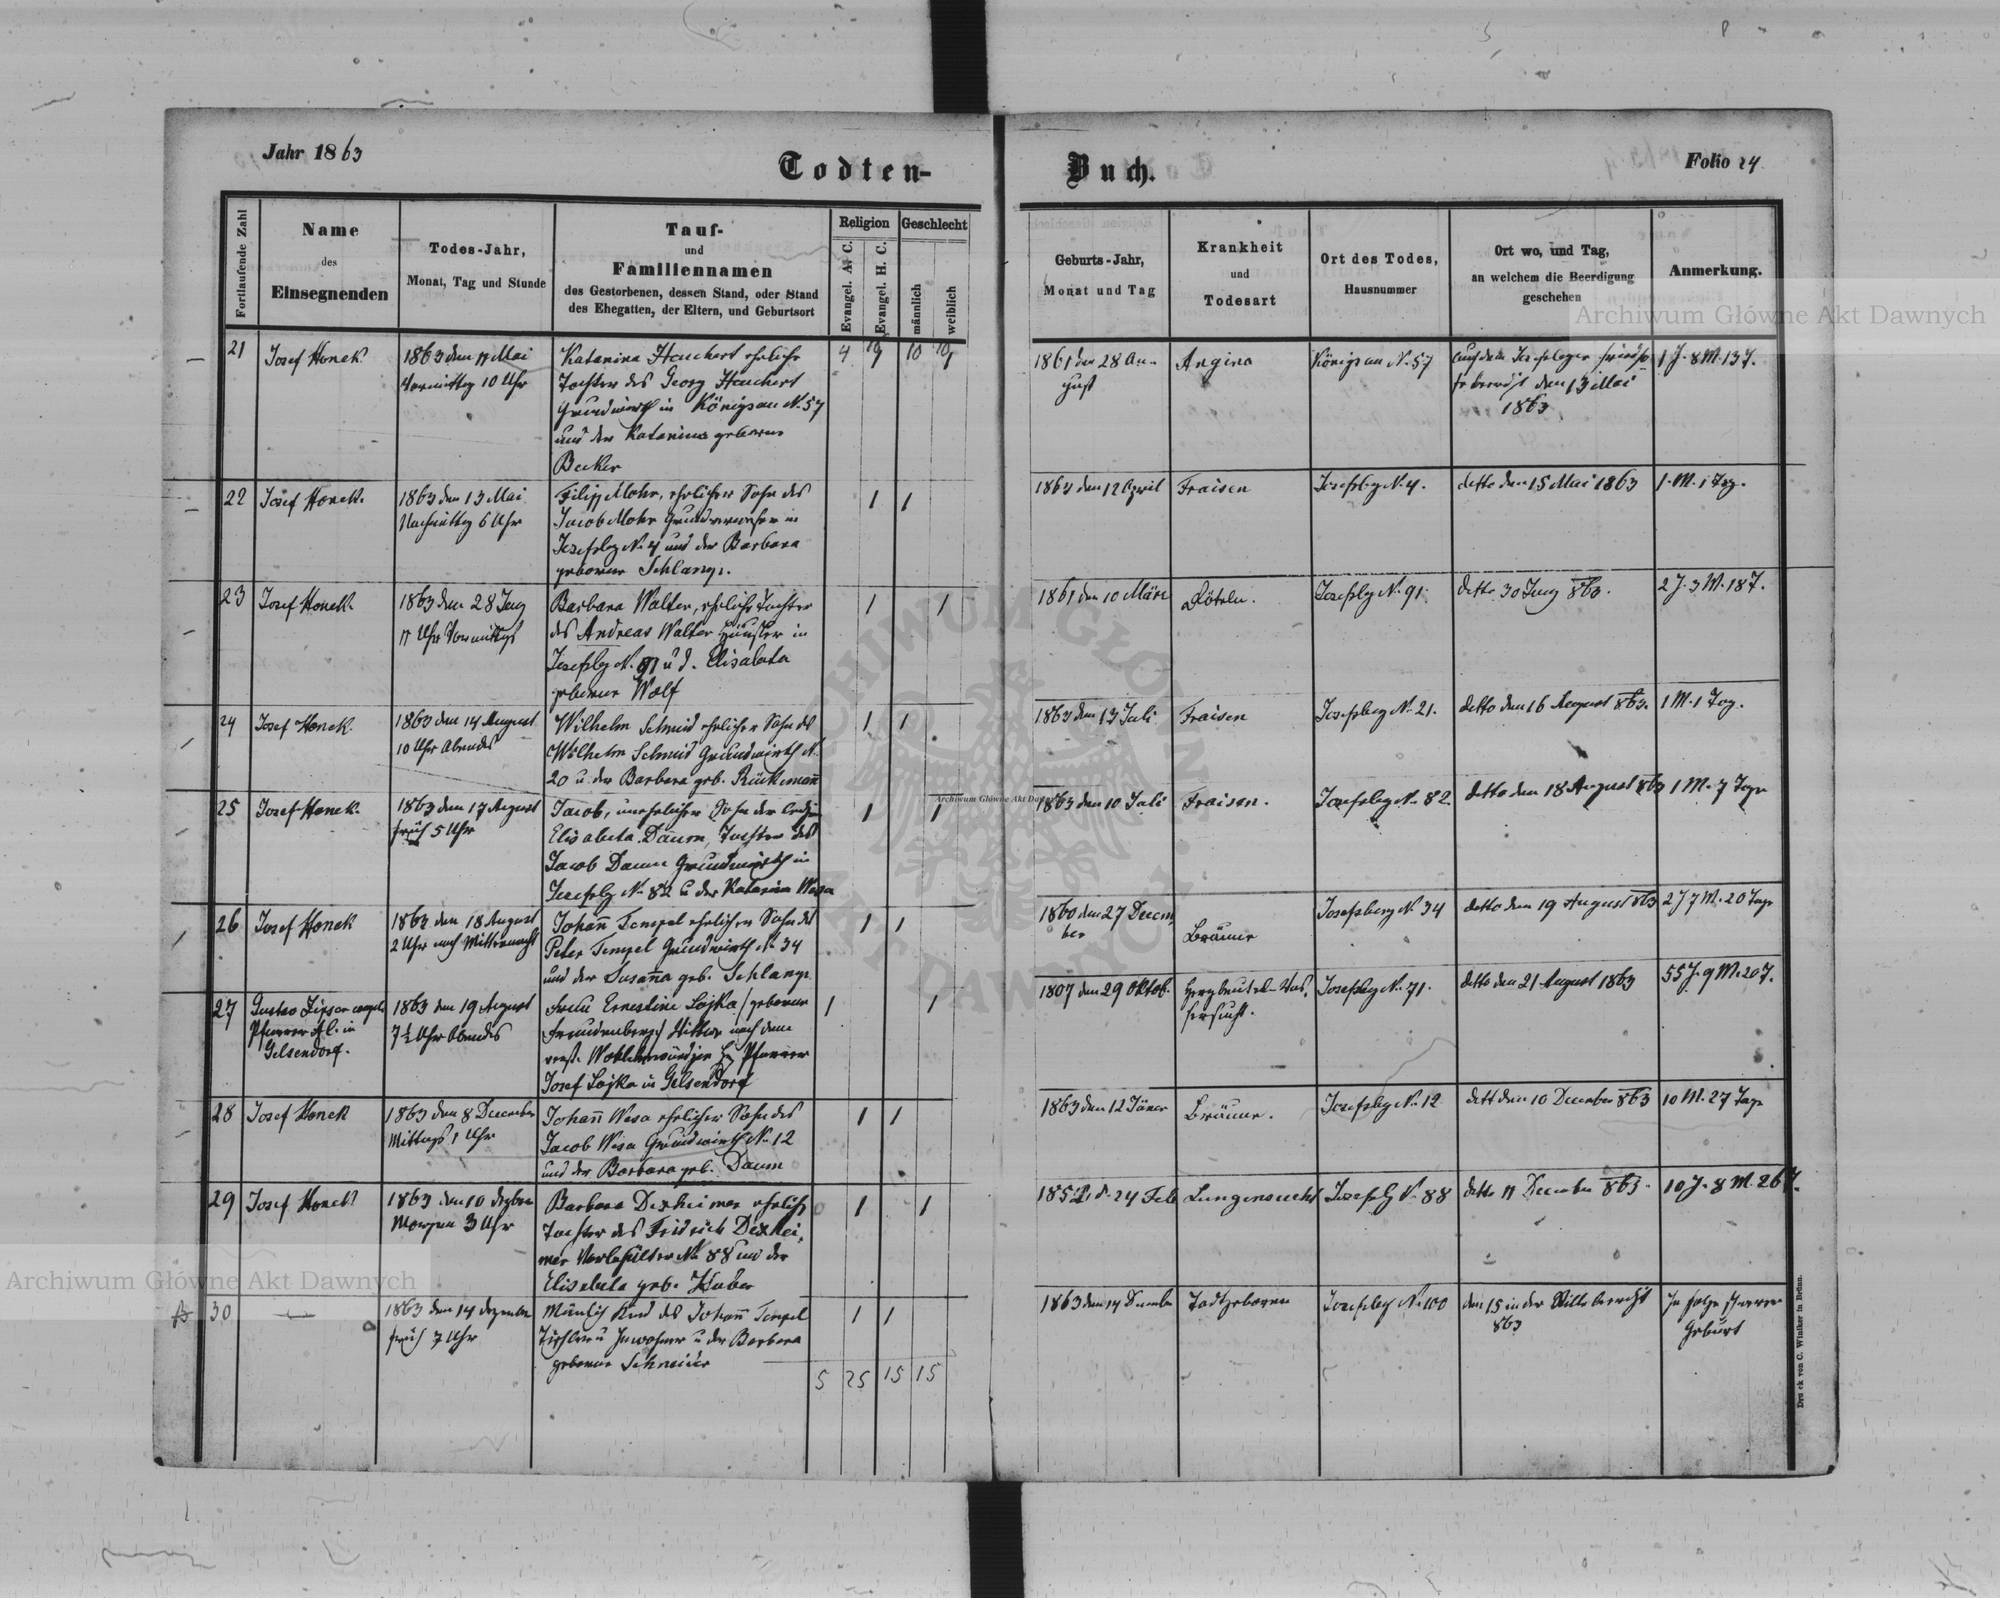 Jahr 1863
Todten-
Buch.
Folio 24
Fortlaufende Zahl
Name
des
Einsegnenden
Todes-Jahr,
Monat, Tag und Stunde
Tauf-
und
Familiennamen
des Gestorbenen, dessen Stand, oder Stand
des Ehegatten, der Eltern, und Geburtsort
Religion
Evangel. A. C.
Evangel. H. C.
Geschlecht
männlich
weiblich
Geburts-Jahr,
Monat und Tag
Krankheit
und
Todesart
Ort des Todes,
Hausnummer
Ort wo, und Tag,
an welchem die Beerdigung
geschehen
Anmerkung.
Archiwum Główne Akt Dawnych
21
Josef Honek
1863 den 11 Mai
Vormittag 10 Uhr
Katarina Hauchert ehrliche
Tochter des Georg Hauchert
Grundwirth in Königsau N. 57
und der Katarina geborne
Becker
4 10 10
1861 den 28 Au-
gust
Angina
Königsau N. 57
den 13 Mai
1863
1 J. 8 M. 13 T.
22
Josef Honek.
1863 den 13 Mai
Nachmittag 6 Uhr
Filipp Mohr, ehrlicher Sohn des
Jacob Mohr in
Josefsbg N. 4 und der Barbara
geborne Schlang.
1 1
1863 den 12 April
Fraisen
Josefsbg N. 4.
detto den 15 Mai 1863
1. M. 1 Tag.
23
Josef Honek.
1863 den 28
11 Uhr Vormittags
Barbara Walter, ehrliche Tochter
des Andreas Walter Häusler in
Josefsbg N. 91 u d. Elisabeta
geborne Wolf
1 1
1861 den 10 März
Röteln.
Josefsbg N. 91.
detto 30 863.
2 J. 3 M. 18 T.
24
Josef Honek.
1863 den 14 August
10 Uhr Abends
Wilhelm Schmid ehrlicher Sohn des
Wilhelm Schmid Grundwirth N.
20 u der Barbara geb. Rückemann
1 1
1863 den 13 Juli
Fraisen
Josefsberg N. 21.
detto den 16 August 863.
1 M. 1 Tag.
25
Josef Honek.
1863 den 17 August
früh 5 Uhr
Jacob, unehelicher Sohn der
Elisabeta Daum, Tochter des
Jacob Daum Grundwirth in
Josefsbg N. 82 u der Katarina
1 1
Archiwum Główne Akt Dawnych
1863 den 10 Juli
Fraisen.
Josefsbg N. 82.
detto den 18 August 863
1 M. 7 Tage
26
Josef Honek
1863 den 18 August
2 Uhr nach Mitternacht
Johann Tempel ehrlicher Sohn des
Peter Tempel Grundwirth N. 34
und der Susanna geb. Schlang.
1 1
1860 den 27 Decem
ber
Bräune
Josefsberg N. 34
detto den 19 August 863
2 J 7 M. 20 Tage
27
Pfarrer A. C. in
Gelsendorf.
1863 den 19 August
7½ Uhr Abends
Frau Ernestine Lojka (geborne
Freudenberg) Wittwe nach dem
Pfarrer
Josef Lojka in Gelsendorf
1 1
1807 den 29 Oktob.
Herzbeutel-Was.
sersucht.
Josefsbg N. 71.
detto den 21 August 1863
55 J. 9 M. 20 T.
28
Josef Honek
1863 den 8 December
Mittags 1 Uhr
Johann Wesa ehrlicher Sohn des
Jacob Wesa Grundwirth N. 12
und der Barbara geb. Daum
1 1
1863 den 12 Jäner
Bräune.
Josefsbg N. 12
detto den 10 December 863
10 M. 27 Tage
29
Josef Honek
1863 den 10 Dezber
Morgens 3 Uhr
Barbara Dexheimer ehrliche
Tochter des Fridrich Dexhei,
mer N. 88 und der
Elisabeta geb. Huber
1 1
24 Feb
Lungensucht
Josefsbg N. 88
detto 11 December 863.
10 J. 8 M. 26 T.
30
1863 den 14 Dezember
früh 7 Uhr
Mänlich Kind des Johann Tempel
Tischler u Inwohner u der Barbara
geborne Schneider
1 1
5 25 15 15
1863 den 14 Decemb
Todtgeboren
Josefsbg N. 100
den 15 in der Stille beerdigt
863
In Folge schwerer
Geburt
Archiwum Główne Akt Dawnych
Druck von C. Winiker in Brünn.
ARCHIWUM GŁÓWNE AKT DAWNYCH